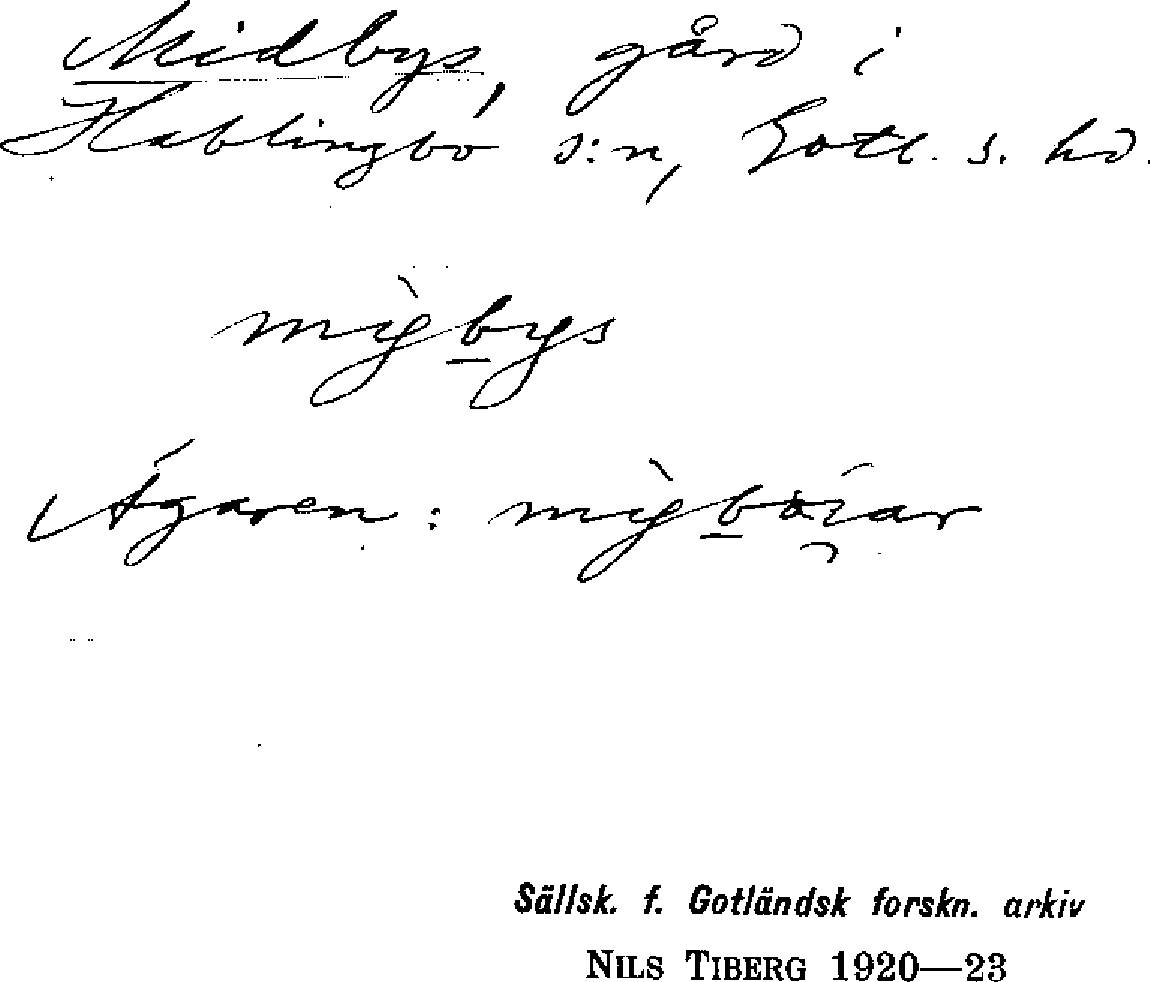 Midbys, gård i
Hablingbo s:n, Gotl. s. hd.
mìgbys
Ägaren: mìgbȯi̯ar
Sällsk. f. Gotländsk forskn. arkiv
NILS TIBERG 1920—23